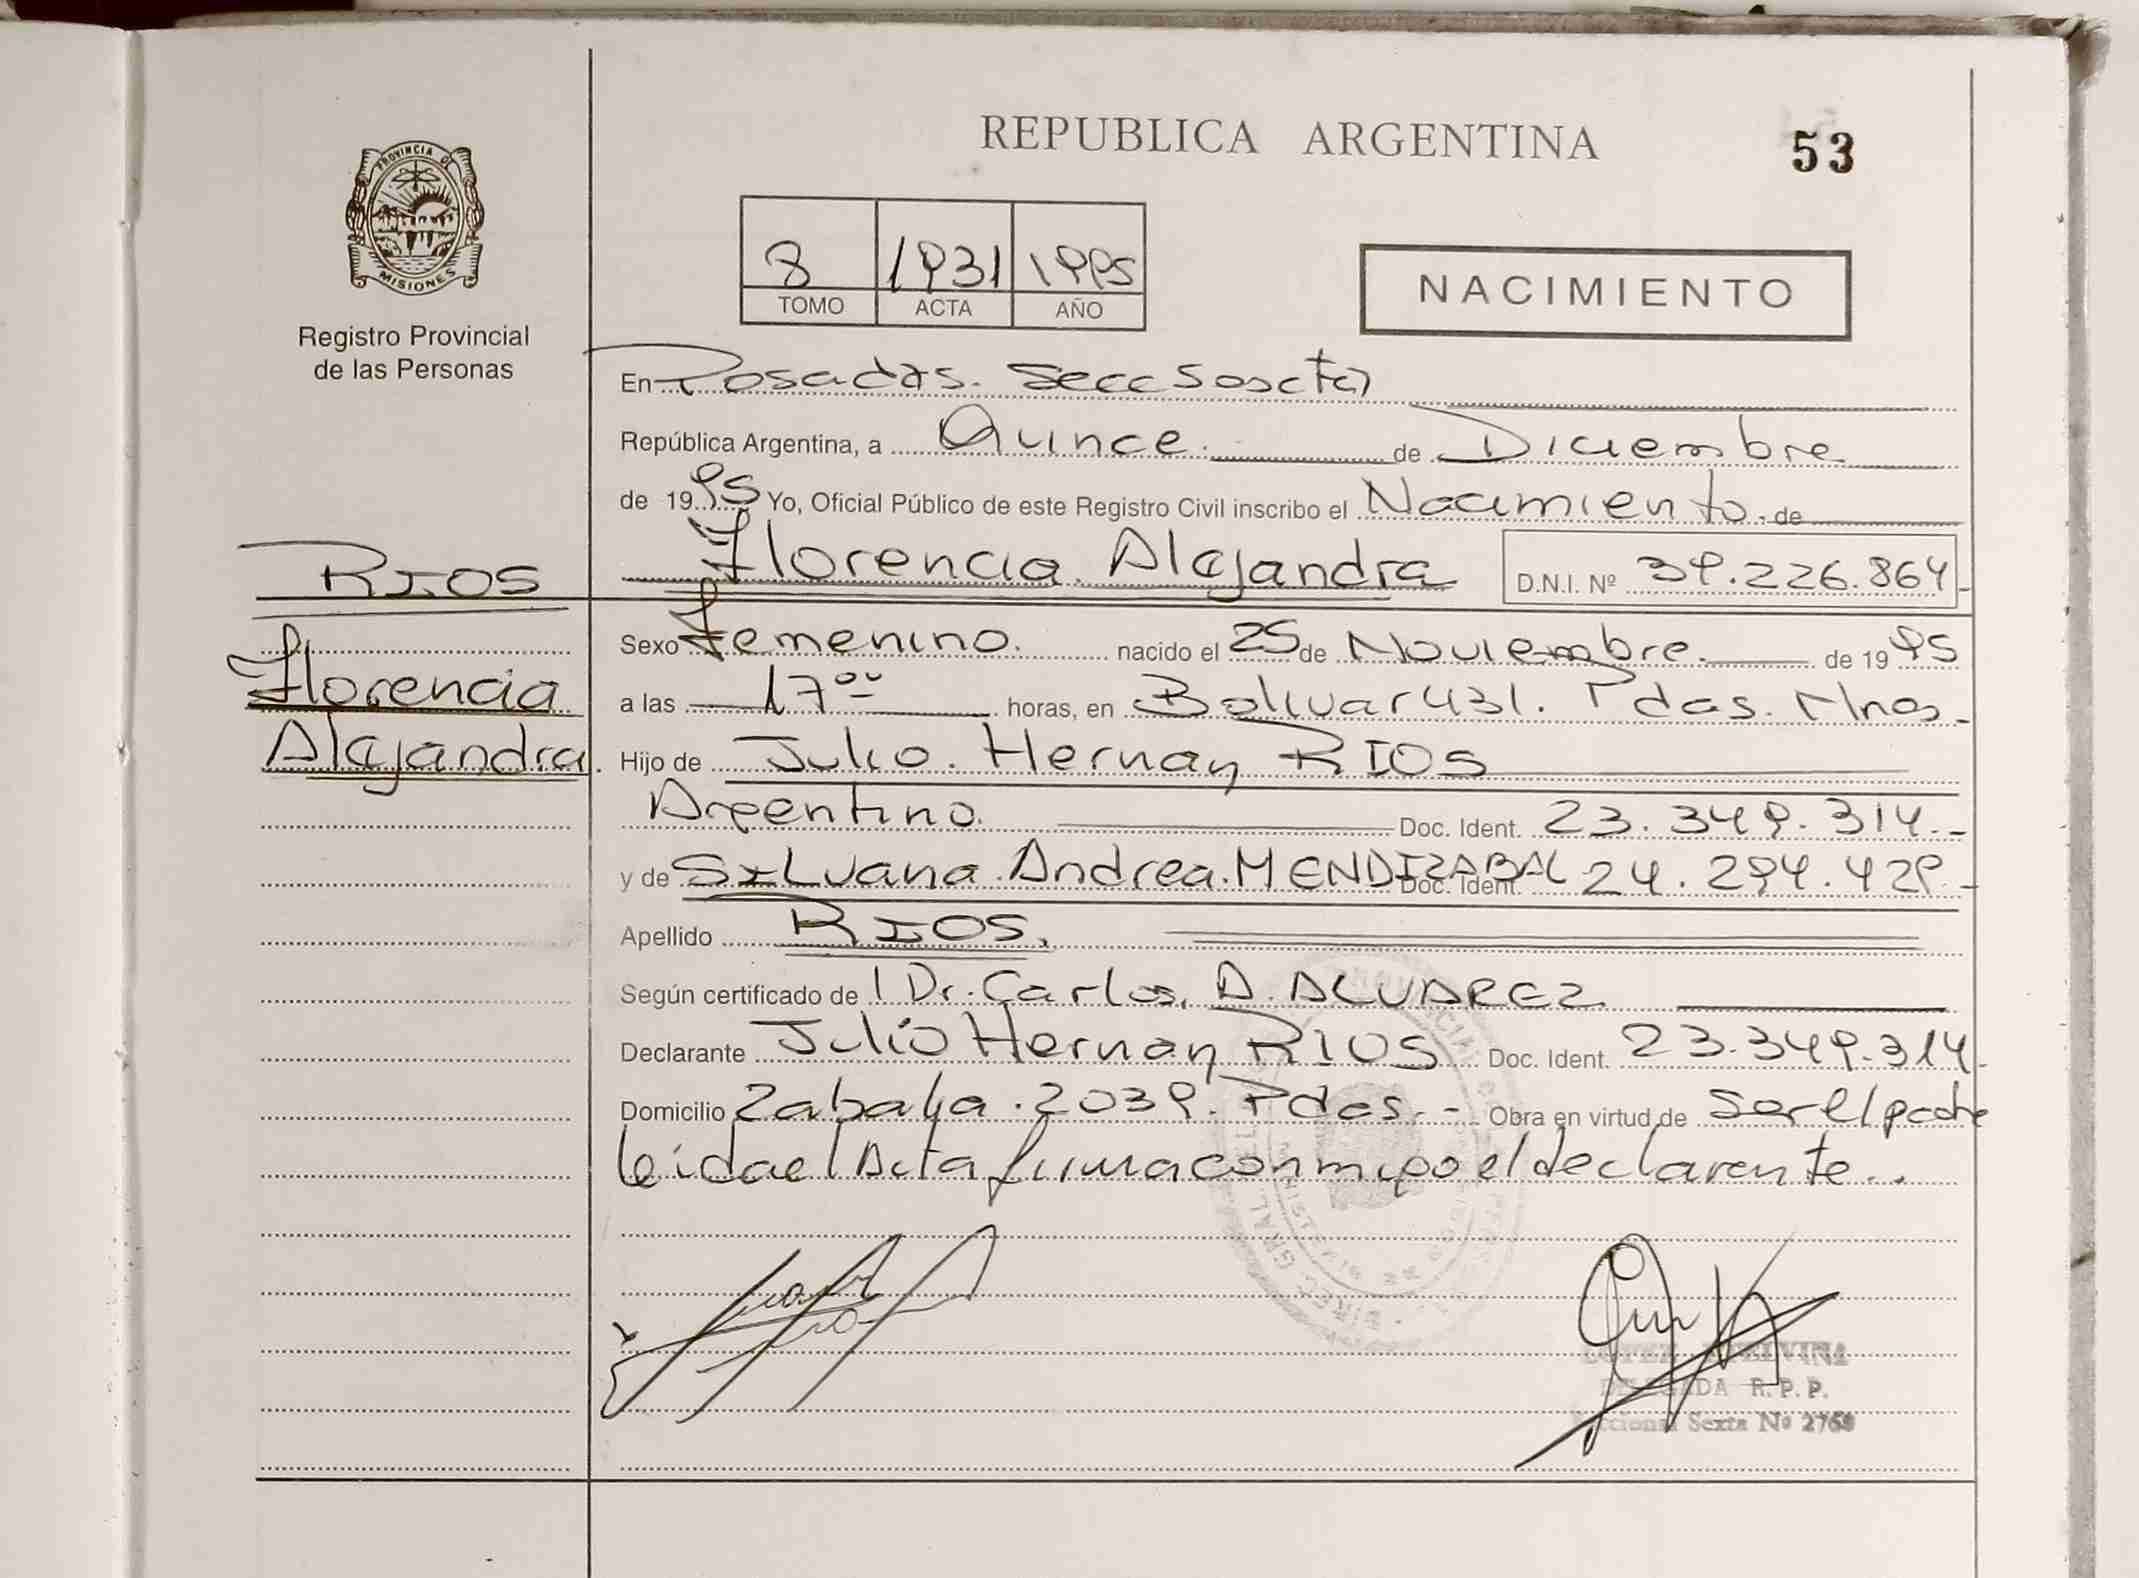 REPUBLICA ARGENTINA
53
PROVINCIA DE
MISIONES
Registro Provincial
de las Personas
8 1931 1995
TOMO ACTA AÑO
NACIMIENTO
En Posadas. Secc Sexta
República Argentina, a Quince. de Diciembre
de 1995 Yo, Oficial Público de este Registro Civil inscribo el Nacimiento. de
Florencia Alejandra D.N.I. Nº 39.226.864
RIOS
Florencia
Alejandra.
Sexo Femenino. nacido el 25 de Noviembre. de 1995
a las 17 00 horas, en Bolivar 431. Pdas. Mnes.
Hijo de Julio. Hernan RIOS
Argentino. Doc. Ident. 23.349.314.-
y de SILvana. Andrea. MENDIZABAL Doc. Ident. 24.294.429.-
Apellido RIOS.
Según certificado de l Dr. Carlos. A. ALVAREZ
Declarante Julio Hernan RIOS Doc. Ident. 23.349.314
Domicilio Zabala. 2039. Pdas.- Obra en virtud de Ser el padre
leida el Acta firma conmigo el declarante..
DELEGADA R. P. P.
Sexta Nº